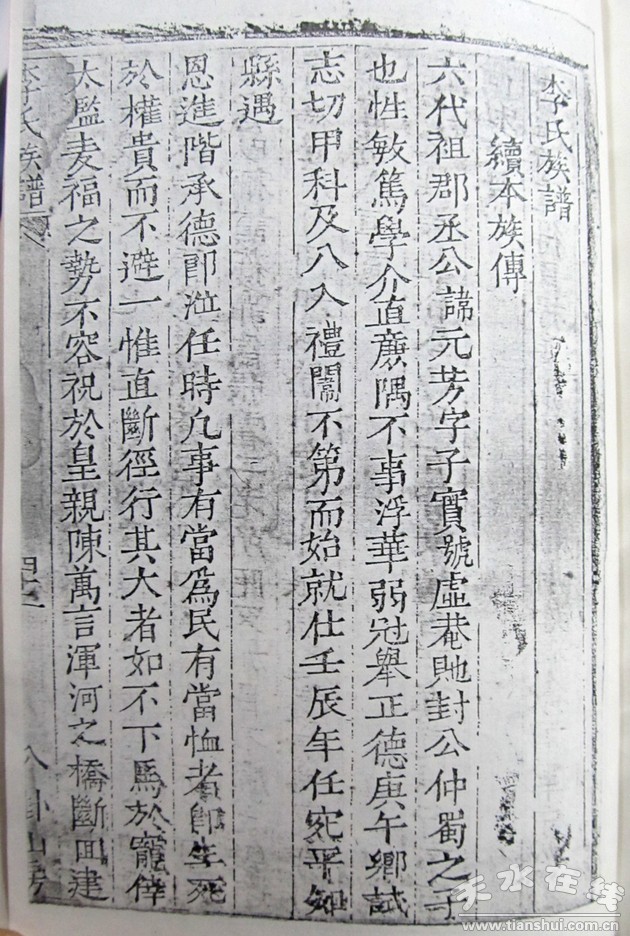 李氏族譜
續本族傳
六代祖郡丞公諱元芳字子實號虛菴貤封公仲蜀之子
也性敏篤學介直廉隅不事浮華弱冠舉正德庚午鄉試
志切甲科及八入禮闈不第而始就仕壬辰年任宛平知
縣遇
恩進階承德郎涖任時凡事有當為民有當恤者即生死
於權貴而不避一惟直斷徑行其大者如不下馬於寵倖
太監麦福之勢不容祝於皇親陳萬言渾河之橋斷回建
李氏族譜
八卦山房
天水在线
www.tianshui.com.cn